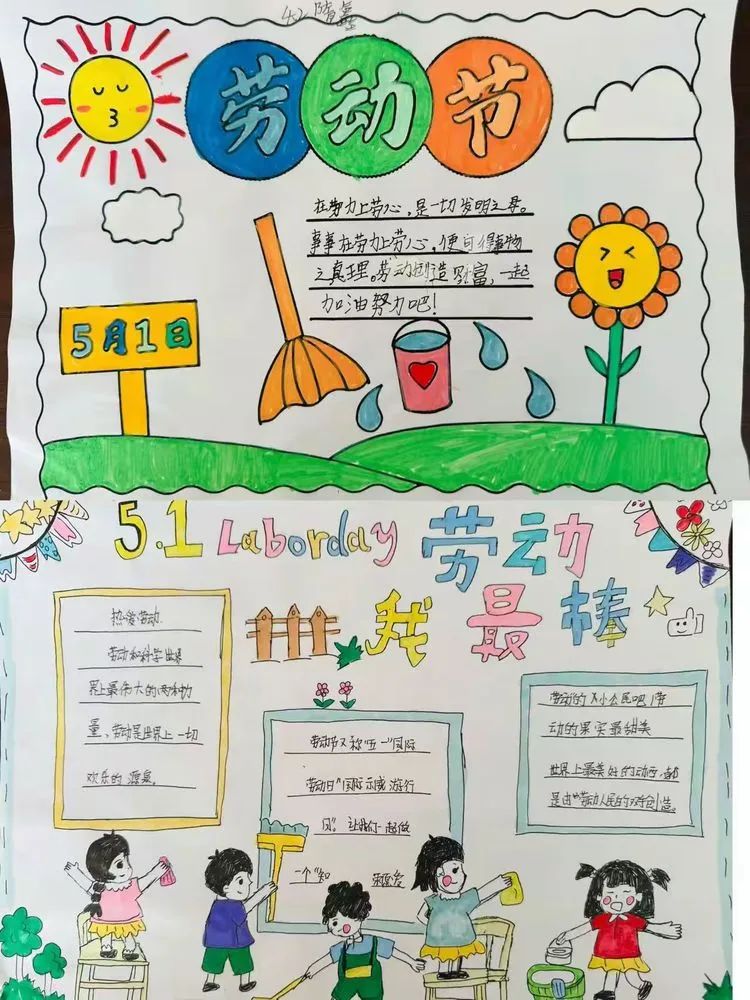 4.2
劳动节
在劳力上劳心，是一切发明之母。
事事在劳力上劳心，便可得事物
之真理。劳动创造财富，一起
加油努力吧！
5月1日
5.1 Laborday 劳动
我最棒
热爱劳动
劳动和科学世界
界上最伟大的两种力
量、劳动是世界上一切
欢乐的源泉。
劳动节又称"五一"国际
劳动日"国际示威游行
让我们一起做
一个"和
劳动的
动的果实最甜美
世界上最美好的动西，都
是由"劳动人民的双手创造。